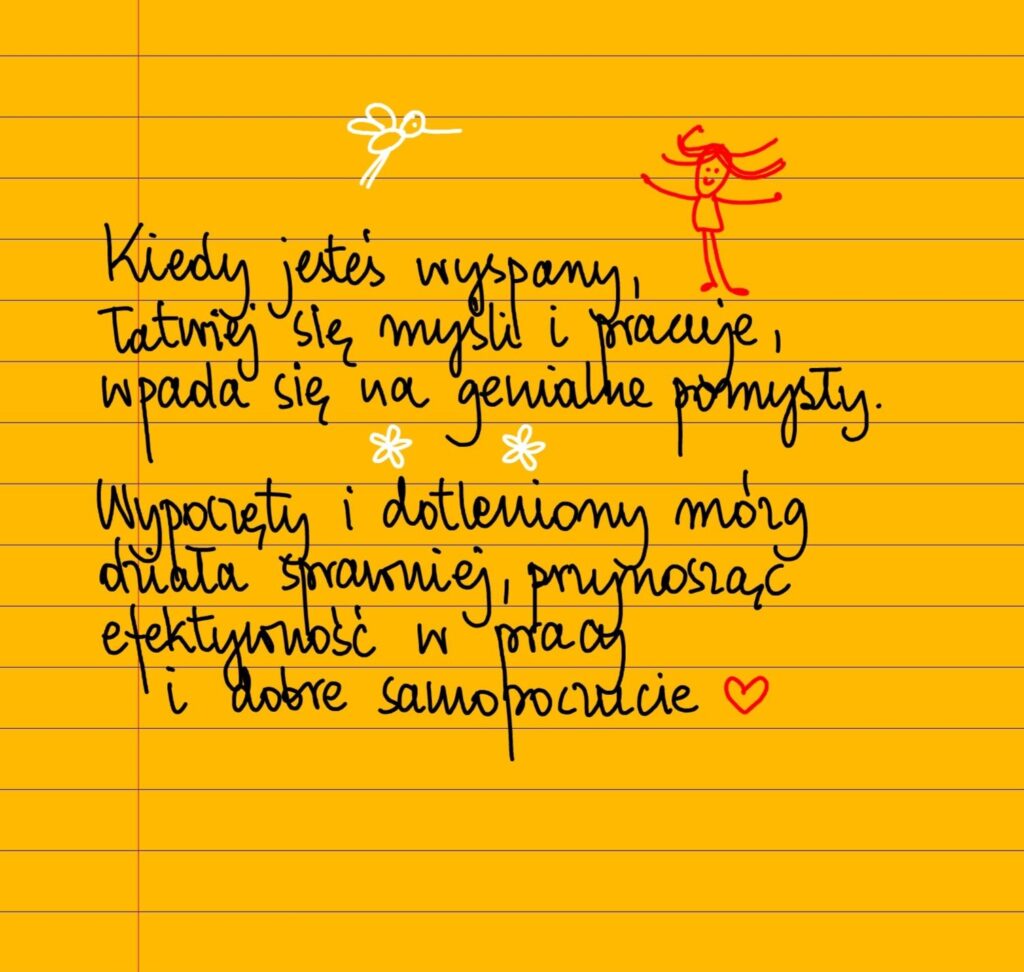 Kiedy jesteś wyspany,
łatwiej się myśli i pracuje,
wpada się na genialne pomysły.
Wypoczęty i dotleniony mózg
działa sprawniej, przynosząc
efektywność w pracy
i dobre samopoczucie